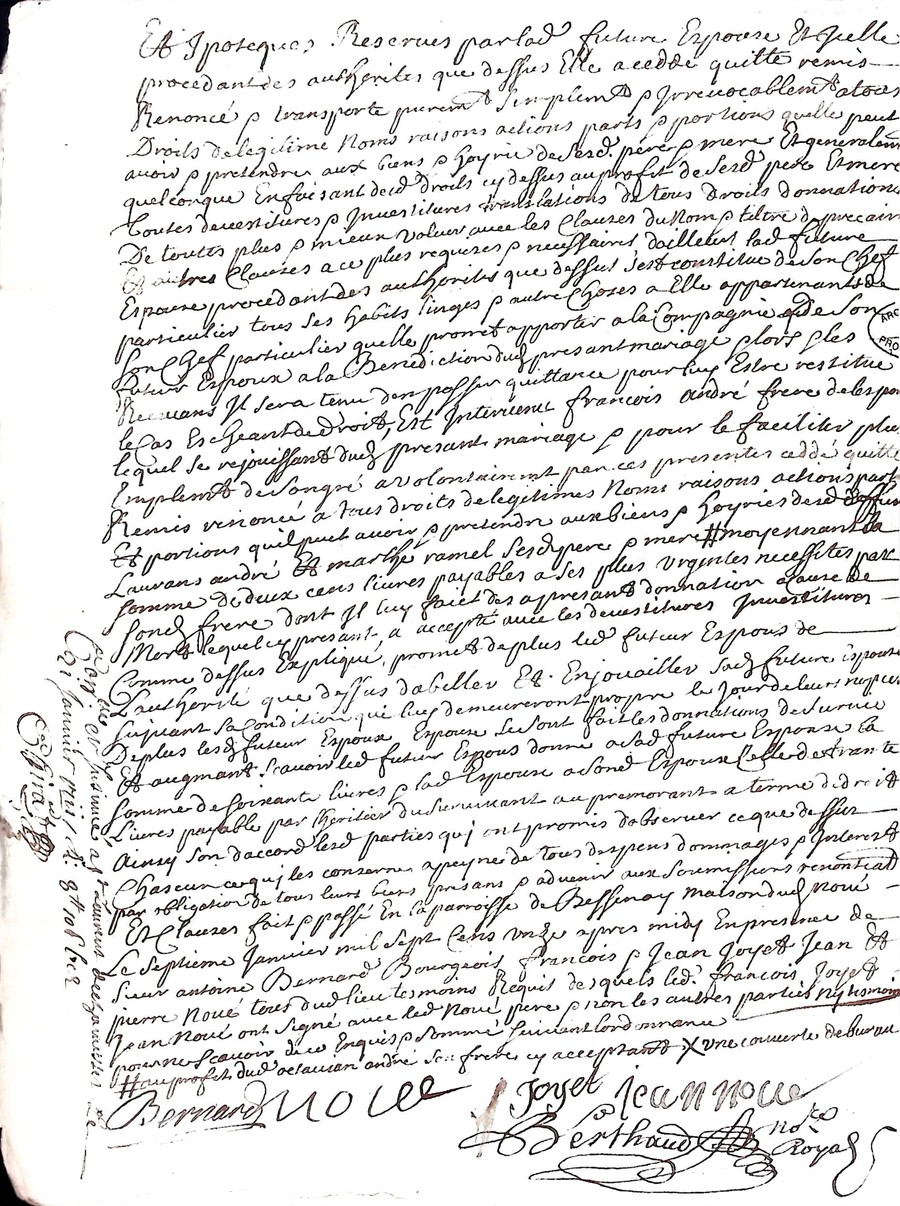 Et Ipoteques Reserves par lad future Espouse Et Icelle
procedant des authorites que dessus Elle a cedde quitte remis
Renoncé p transporté purem^t simplem^t p Irrevocablem^t a tous
Droits de legitime Noms raisons actions parts p portions quelle peut
avoir p pretendre aux biens p hoyrie de sesd. pere p mere Et generalem
quelconque En faisant desd droits cy dessus au profit de sesd pere Et mere
toutes devestitures p Investitures translations de tous droits donnations
De toutes plus p mieux valuer avec les Clauses du Nom p tiltre de precaire
Et autres Clauses a ce plus requizes p necessaires dailleurs lad future
Espouse procedant des authorites que dessus s'est constitue de son Chef
particulier tous ses habits linges p autre Choses a Elle appartenants de
son Chef particulier quelle promet apporter a la Compagnie de son
futur Espoux a la Benediction dud presant mariage p lors p les
Recevans Il sera tenu den passer quittance pour luy Estre restitue
le Cas Escheant de droit, Est Intervenu francois andré frere de lespou
lequel se rejouissant dud presant mariage p pour le faciliter plus
Emplem^t de son gré a volontairem^t par ces presentes ceddé quitté
Remis renoncé a tous droits de legitimes Noms raisons actions part
Et portions quil peut avoir p pretendre aux biens p hoyries desd
Laurans andré Et marthe ramel sesd pere p mere # moyennant la
somme de deux cens livres payables a ses plus urgentes necessites par
sond frere dont Il luy faict des a presant donnation a cause de
Mort lequel cy presant, a accepté avec les devestitures Investitures
Comme dessus Expliqué, promet de plus led futur Espous de
L'authorité que dessus dabeller Et Enjouailler sad future Espouse
suivant sa Condition qui luy demeureront propre le jour de leurs nopces
De plus lesd futur Espoux Espouse se sont fait les donnations de survie
Et augmant scavoir led futur Espous donne a sad future Espouse la
somme de soixante livres p lad Espouse a sond Espoux Celle de trante
Livres payable par heritier du survivant au premorant a terme de droit
Ainsy son daccord lesd parties quj ont promis d'observer ce que dessus
Chascun ce quj les conserne a peyne de tous despens dommages p Interest
par obligation de tous leurs biens presans p advenir aux soumissions renontiaō
Et Clauses fait p passé En la parroisse de Bessenay maison dud Noué
Le septieme Janvier mil sept Cens unze apres midy En presence de
sieur antoine Bernard Bourgeois francois p Jean Joyet Jean Et
pierre Noué tous dud lieu tesmoins Requis desquels led. francois Joyet
Jean Noué ont signé avec led Noué pere p non les autres parties ny tesmoins
pour ne scavoir de ce Enquis p sommé suivant lordonnance
# au profit dud octavian andré son frere cy acceptant X une couverte de bureau
Bernard Noué Joyet jean noué
Berthaud no^re Royal